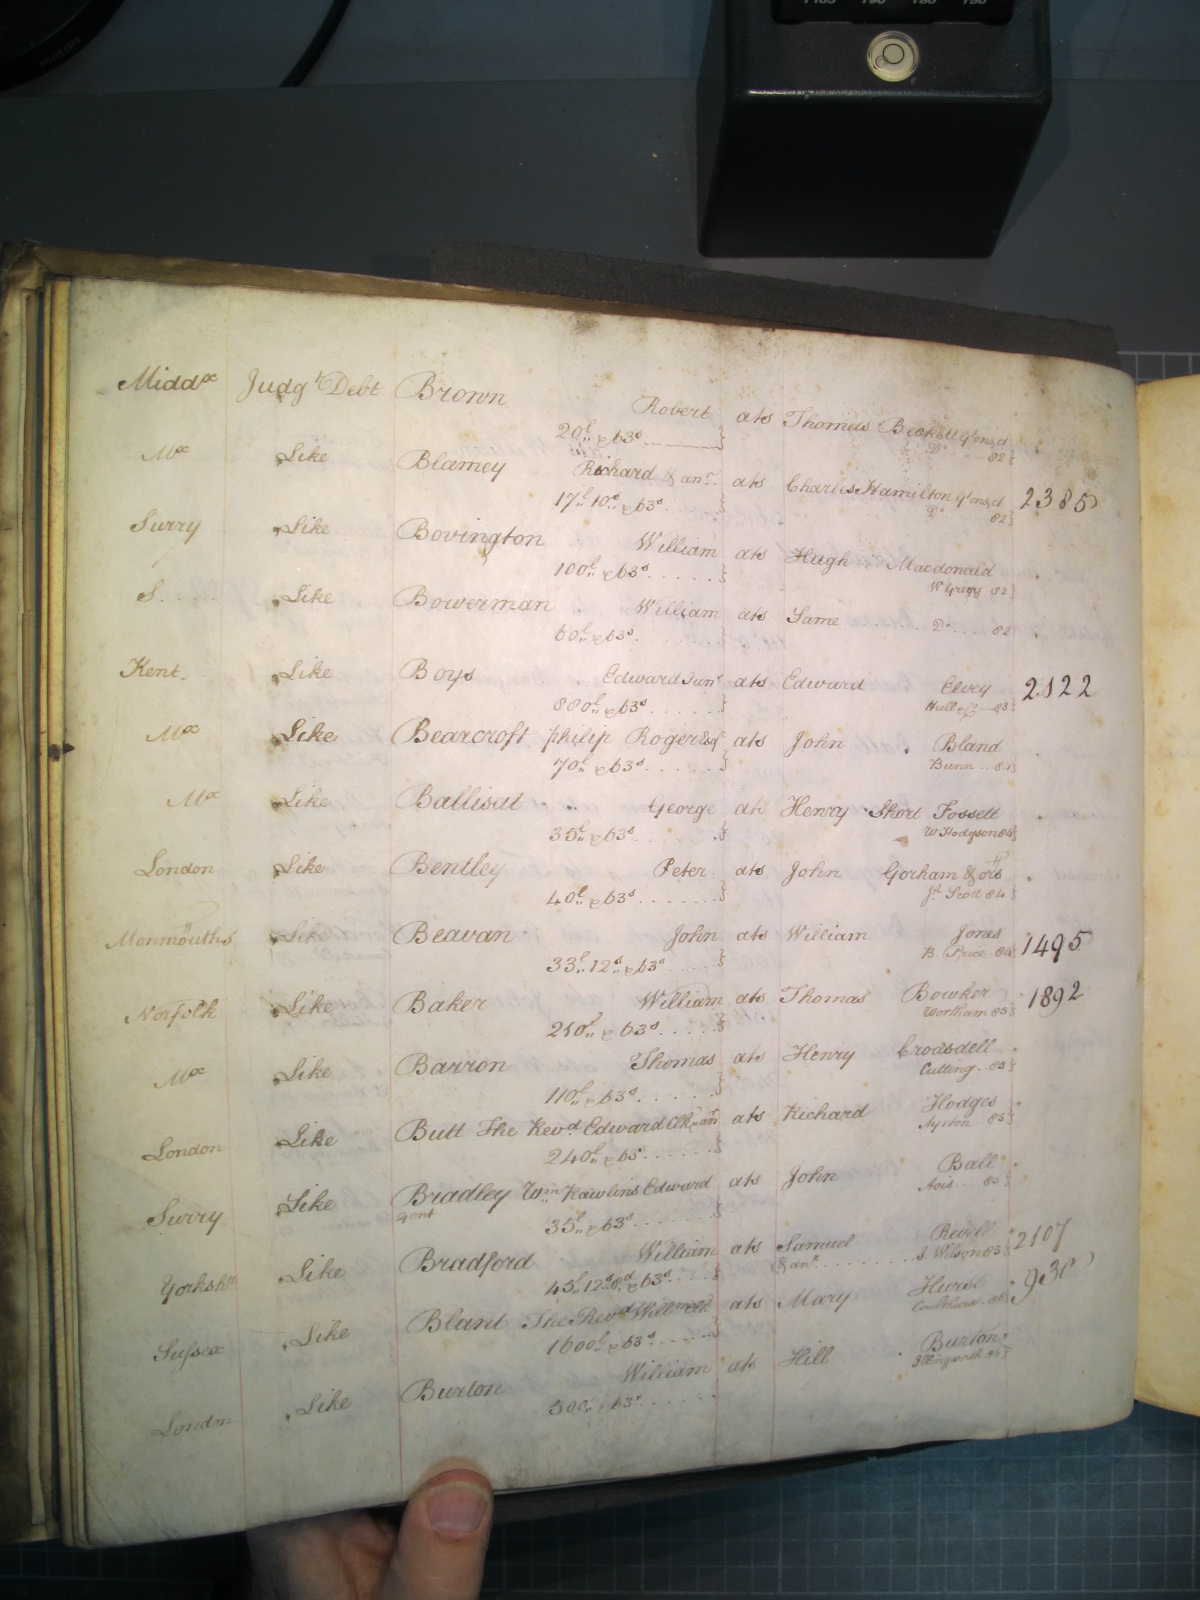 1105 190 180 150
PHILIPS
Middx Judgt Debt Brown Robert ats Thomas Beckett
20£ & 63s Do 82
Mx Like Blamey Richard & anr ats Charles Hamilton 2385
17£ 10s & 63s Do 82
Surry Like Bovington William ats Hugh Macdonald
100£ & 63s W Gregg 82
S Like Bowerman William ats Same
60£ & 63s Do 82
Kent Like Boys Edward Junr ats Edward Elvey 2122
880£ & 63s 83
Mx Like Bearcroft philip Roger Esq ats John Bland
70£ & 63s Bunn 84
Mx Like Ballisat George ats Henry Short Fossett
35£ & 63s W Hodgson 84
London Like Bentley Peter ats John Gorham & ors
40£ & 63s Scott 84
Monmouths Like Beavan John ats William Jones 1495
33£ 12s & 63s B. Price 84
Norfolk Like Baker William ats Thomas Bowker 1892
210£ & 63s Wortham 85
Mx Like Barron Thomas ats Henry Croasdell
110£ & 63s Cutting 85
London Like Butt The Revd Edward Clk & anr ats Richard Hodges
240£ & 63s Ayrton 85
Surry Like Bradley Wm Rawlins Edward ats John Ball
Gent 35£ & 63s Avis 85
Yorkshre Like Bradford William ats Samuel Revell 2107
45£ 12s 8d & 63s & anr J. Wilson 85
Sussex Like Bland The Revd Willm Clk ats Mary Hurst 930
1600£ & 63s 86
London Like Burton William ats Hill Burton
500£ & 63s Illingworth 86